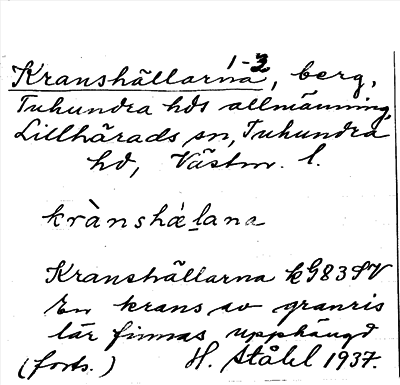 1-3
Kranshällarna, berg,
Tuhundra hds allmänning,
Lillhärads sn, Tuhundra
hd, Västm. l.
krànshæ̀lana
Kranshällarna kG83SV
En krans av granris
lär finnas upphängd
(forts.) H. Ståhl 1937.